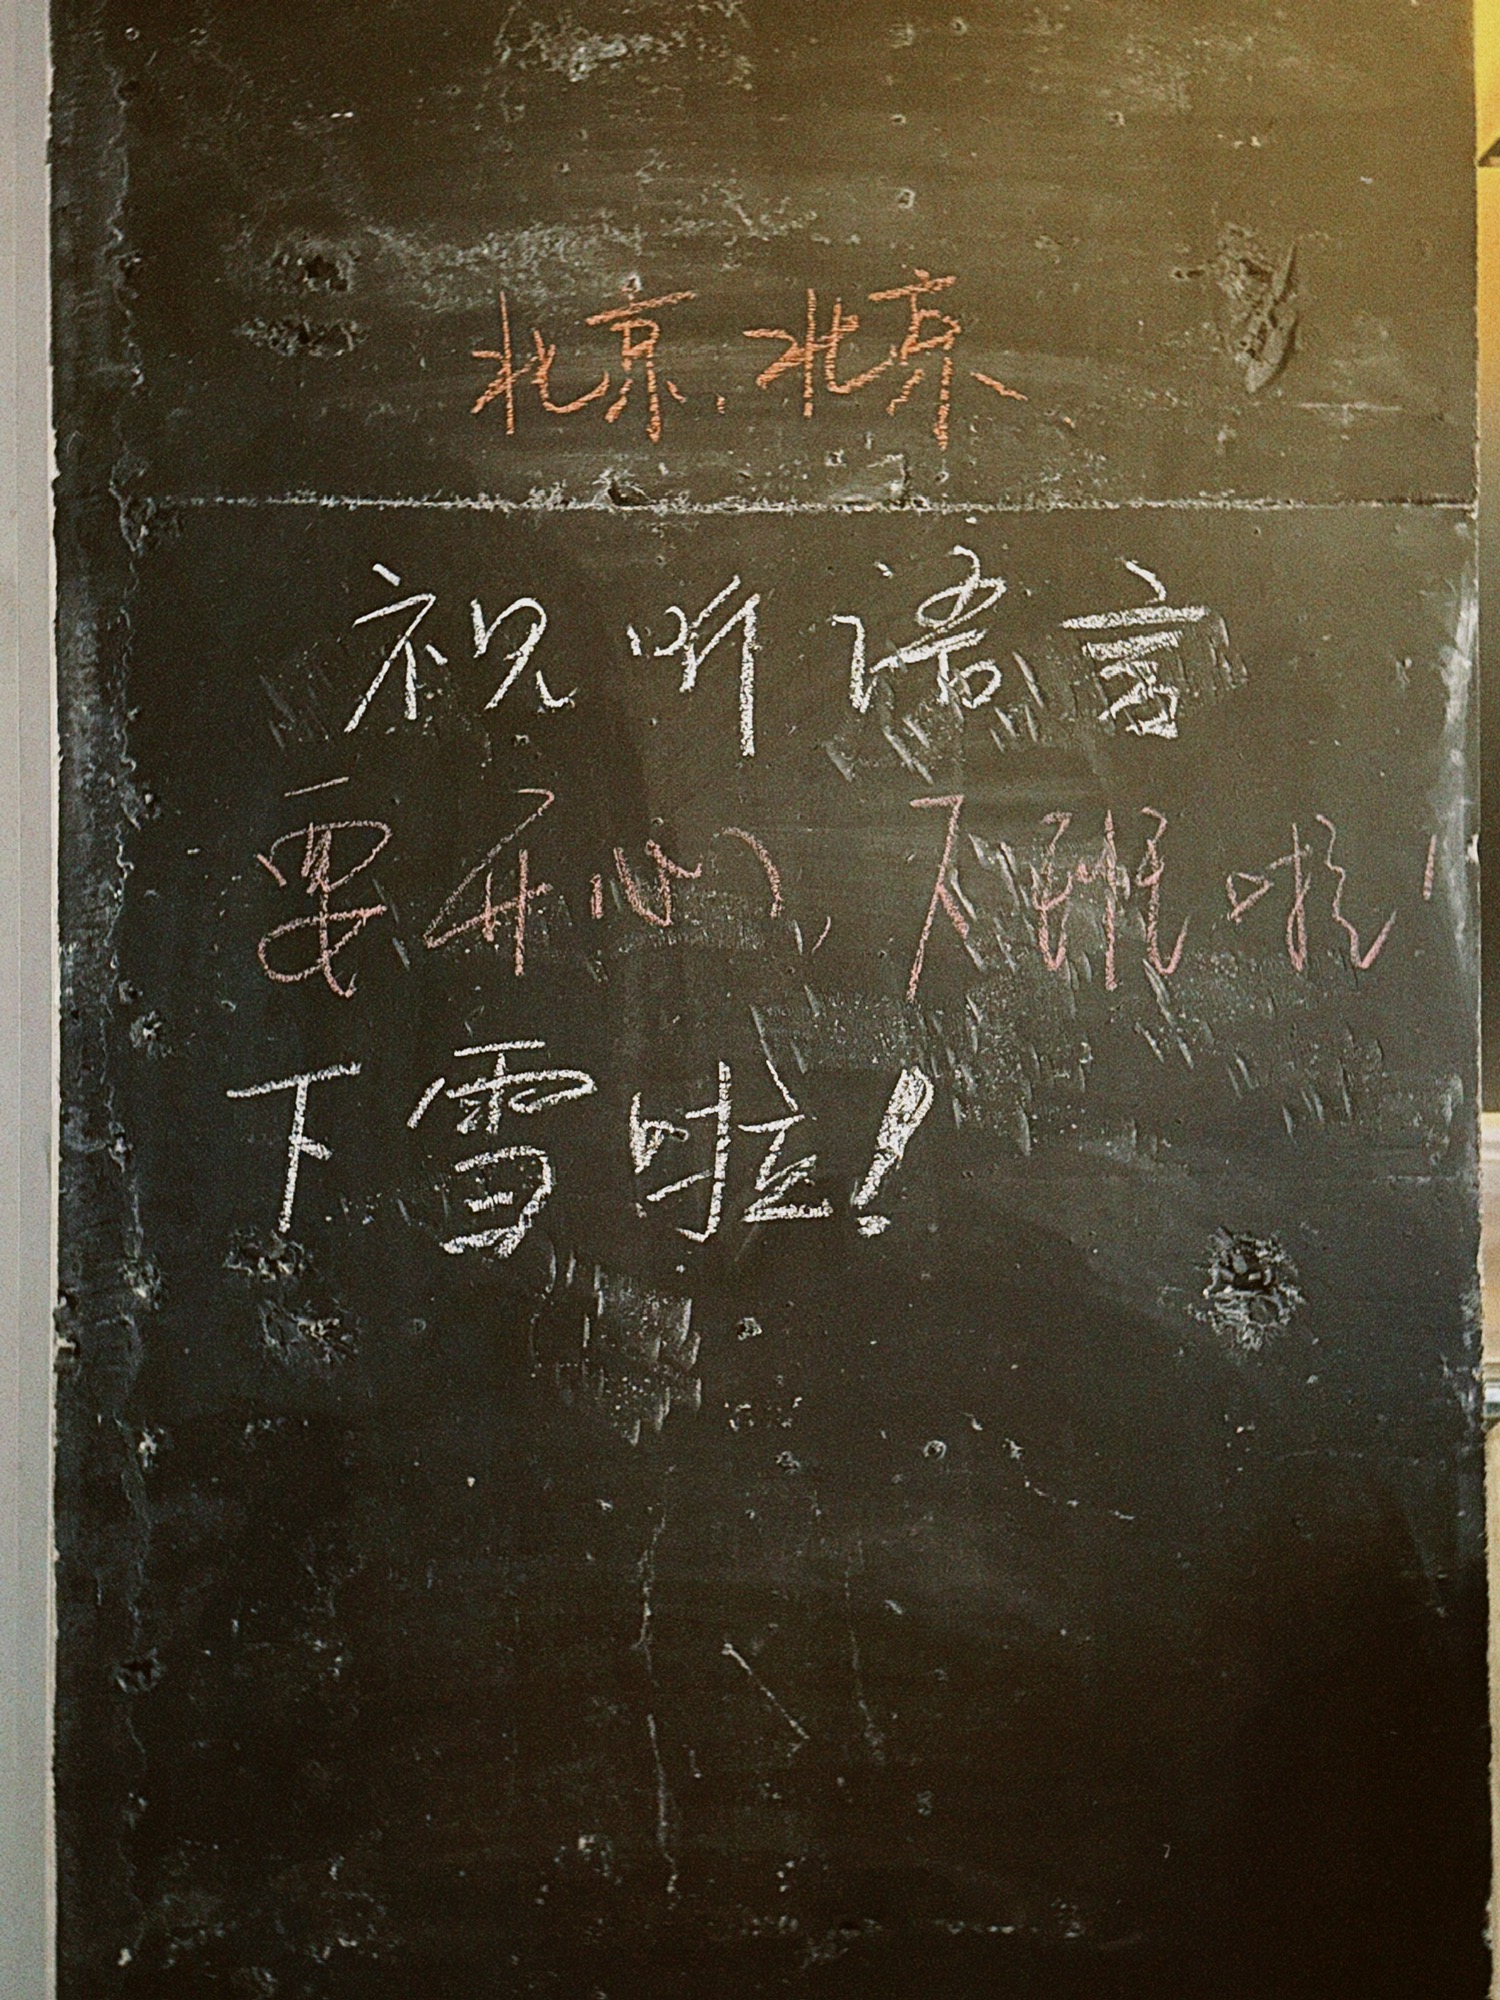 北京、北京
视听语言
要开心，下班啦！
下雪啦！